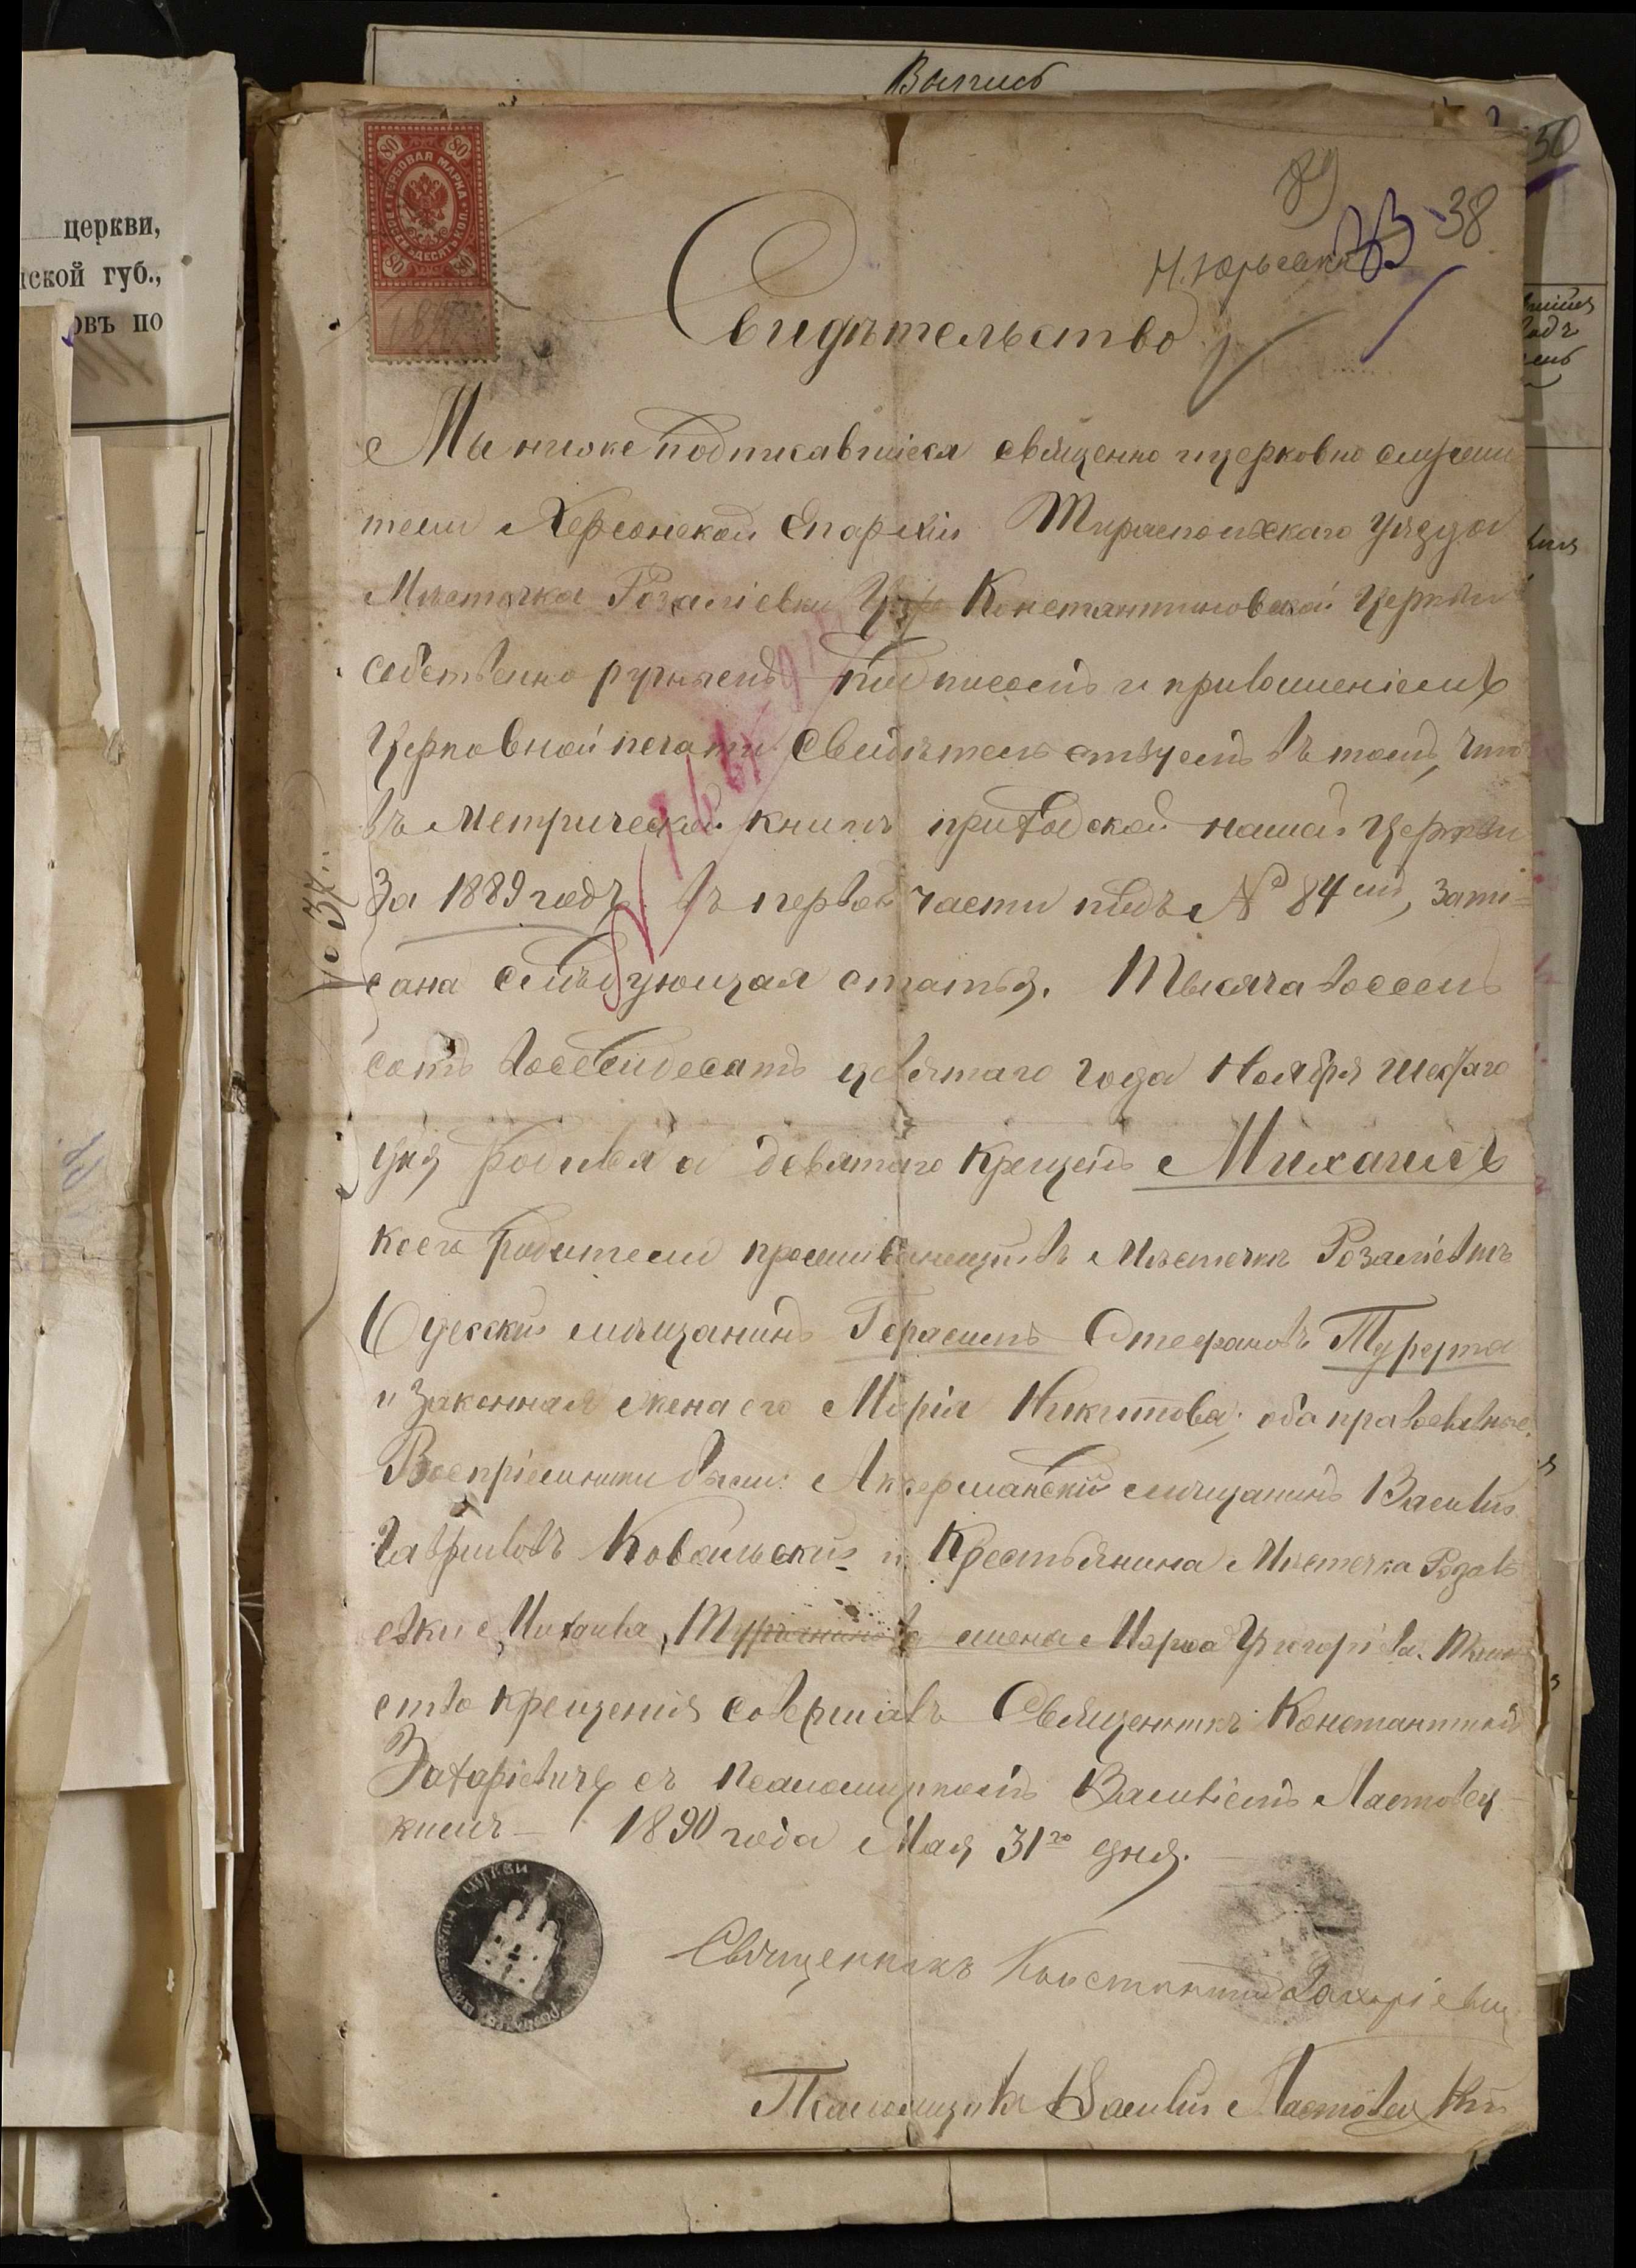 Выпись
церкви,
ской губ.,
овъ по
50
80 80
ГЕРБОВАЯ МАРКА
80 80
38
33
Н. Юрьевка
Свидѣтельство
Мы ниже подписавшіеся священно и церковно служи
тели Херсонской Епархіи Тираспольскаго уѣзда
Мѣстечка Розаліевки Константиновской Церкви
собственно ручнымъ подписомъ и приложеніемъ
Церковной печати свидѣтельствуемъ въ томъ, что
въ Метрической книгѣ приходской нашей Церкви
За 1889 годъ въ первой части подъ № 84 мъ, запи=
сана слѣдующая статья. Тысяча восемь
сотъ восемьдесятъ девятаго года Ноября шестаго
дня родился а девятаго крещенъ Михаилъ
коего родители проживающій въ Мѣстечкѣ Розаліевкѣ
Одесскій мѣщанинъ Герасимъ Стефановъ Турурта
и Законная жена его Марія Никитова; оба православные.
Воспріемники были: Аккерманскій мѣщанинъ Василій
Гавриловъ Ковальскій и Крестьянина Мѣстечка Розалі
евки Михаила жена Марфа Григоріева. Таин
ство крещенія совершалъ Священникъ Константинъ
Захаріевичъ съ Псаломщикомъ Василіемъ Ластовец
кимъ — 1890 года Мая 31го дня.
церкви
Священникъ Константинъ Захаріевичъ
Псаломщикъ Василій Ластовецкій